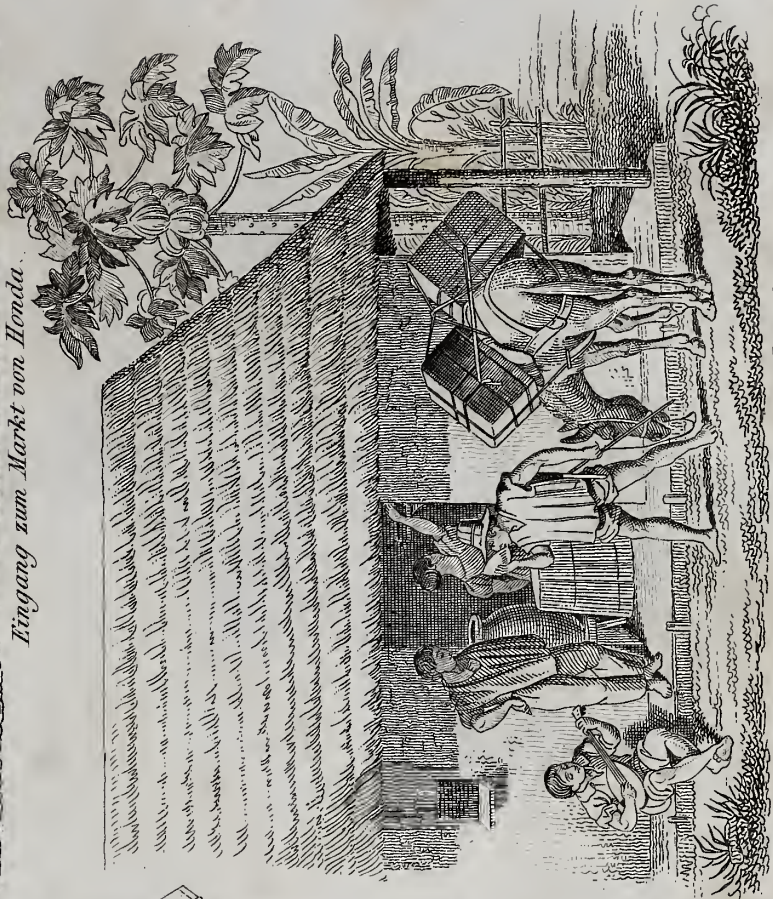 Eingang zum Markt von Honda.